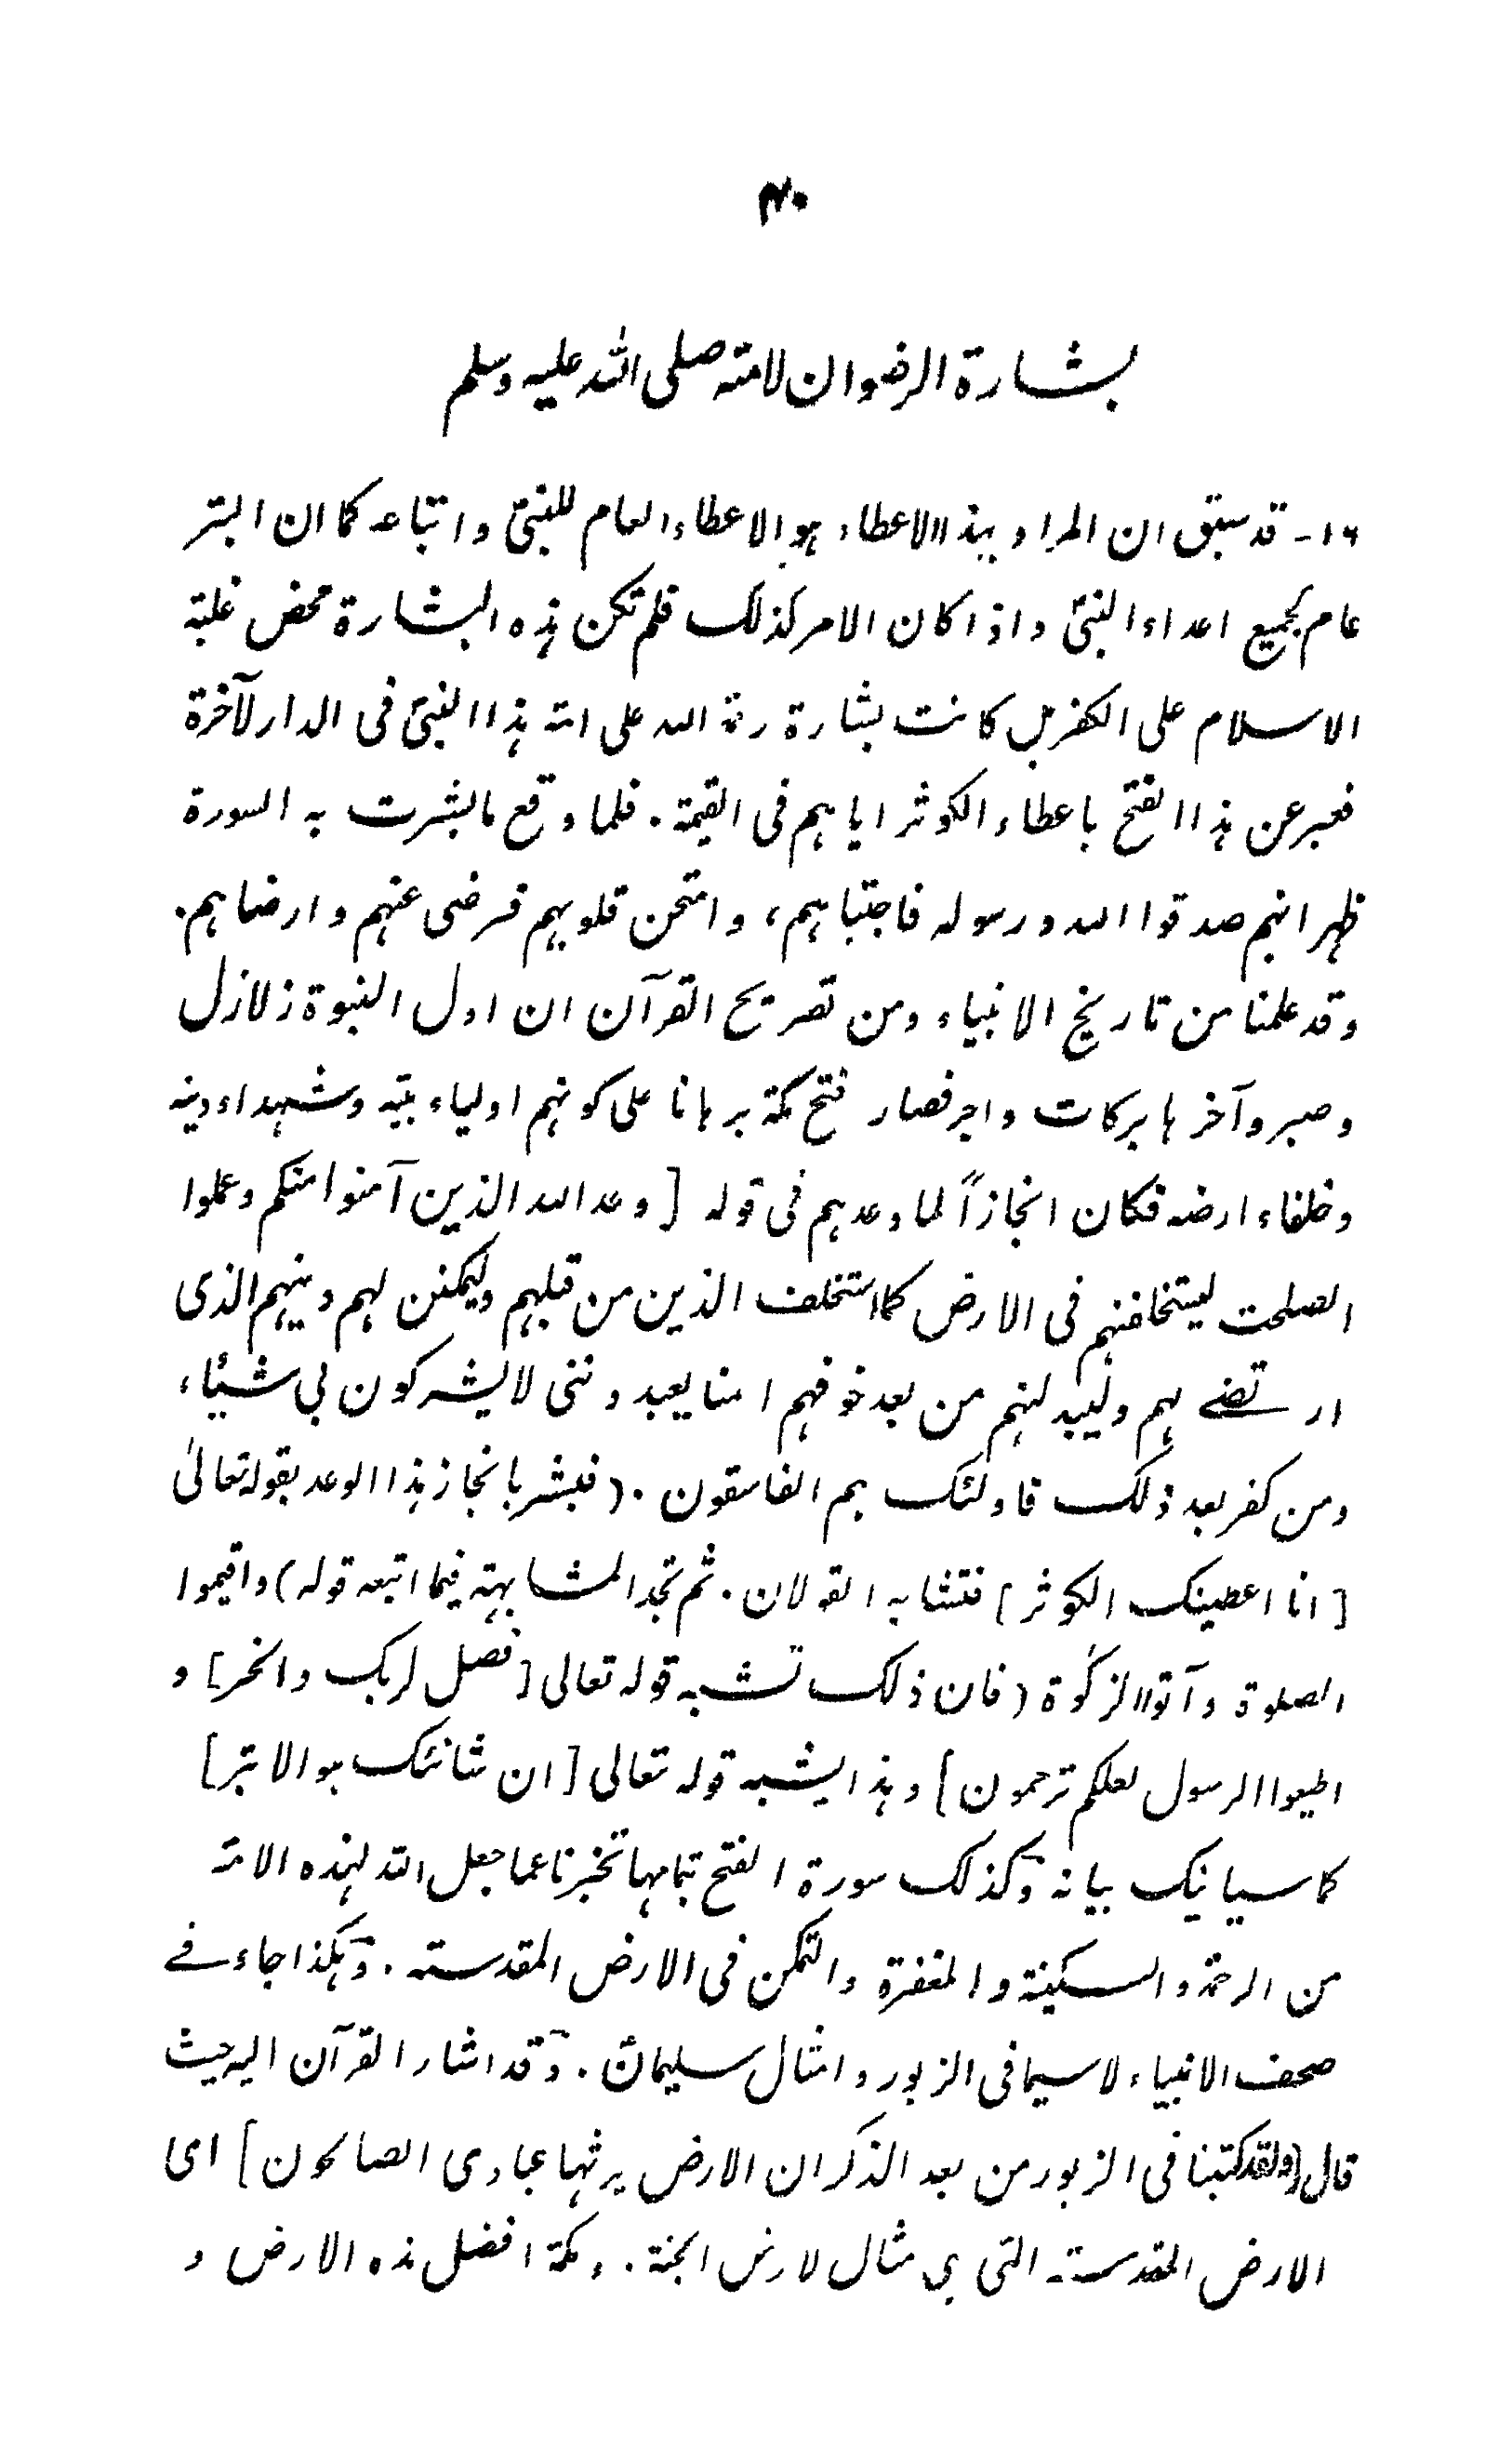 ۴۰
بشارة الرضوان لامته صلی اللہ علیہ وسلم
۱۶- قد سبق ان المراد بہذا الاعطاء ہو الاعطاء العام للنبیؐ و اتباعہ کما ان البتر
عام لجمیع اعداء النبیؐ و اذا کان الامر کذلک فلم تکن ہذہ البشارة محض غلبة
الاسلام علی الکفر بل کانت بشارة رحمة اللہ علی امة ہذا النبیؐ فی الدار الآخرة
فعبر عن ہذا الفتح باعطاء الکوثر ایاہم فی القیمة. فلما وقع ما بشرت بہ السورة
ظہر انہم صدقوا اللہ و رسولہ فاجتباہم، و امتحن قلوبہم فرضی عنہم و ارضاہم.
وقد علمنا من تاریخ الانبیاء ومن تصریح القرآن ان اول النبوة زلازل
وصبر وآخرہا برکات واجر فصار فتح مکة برہانا علی کونہم اولیاء بیتہ وشہداء دینہ
وخلفاء ارضہ فکان انجازاً لما وعدہم فی قولہ [وعد اللہ الذین آمنوا منکم وعملوا
الصلحت لیستخلفنہم فی الارض کما استخلف الذین من قبلہم ولیمکنن لہم دینہم الذی
ارتضے لہم ولیبدلنہم من بعد خوفہم امنا یعبدوننی لا یشرکون بی شیئا،
ومن کفر بعد ذلک فاولئک ہم الفاسقون. (فبشر بانجاز ہذا الوعد بقولہ تعالیٰ
[انا اعطینک الکوثر] فتشابہ القولان. ثم تجد المشابہتہ فیما اتبعہ قولہ) واقیموا
الصلوة وآتوا الزکوٰة (فان ذلک تشبہ قولہ تعالی [فصل لربک وانحر] و
اطیعوا الرسول لعلکم ترحمون] وہذا یشبہ قولہ تعالی [ان شانئک ہو الابتر]
کما سیاتیک بیانہ وکذلک سورة الفتح بتمامہا تخبرنا عما جعل اللہ لہذہ الامة
من الرحمة والسکینة والمغفرة والتمکن فی الارض المقدستہ. وہکذا جاء فے
صحف الانبیاء لاسیما فی الزبور و امثال سلیمانؑ. وقد اشار القرآن الیہ حیث
قال [ولقد کتبنا فی الزبور من بعد الذکر ان الارض یرثہا عبادی الصالحون] ای
الارض المقدستہ التی ہی مثال لارض الجنة. ومکة افضل ہذہ الارض و